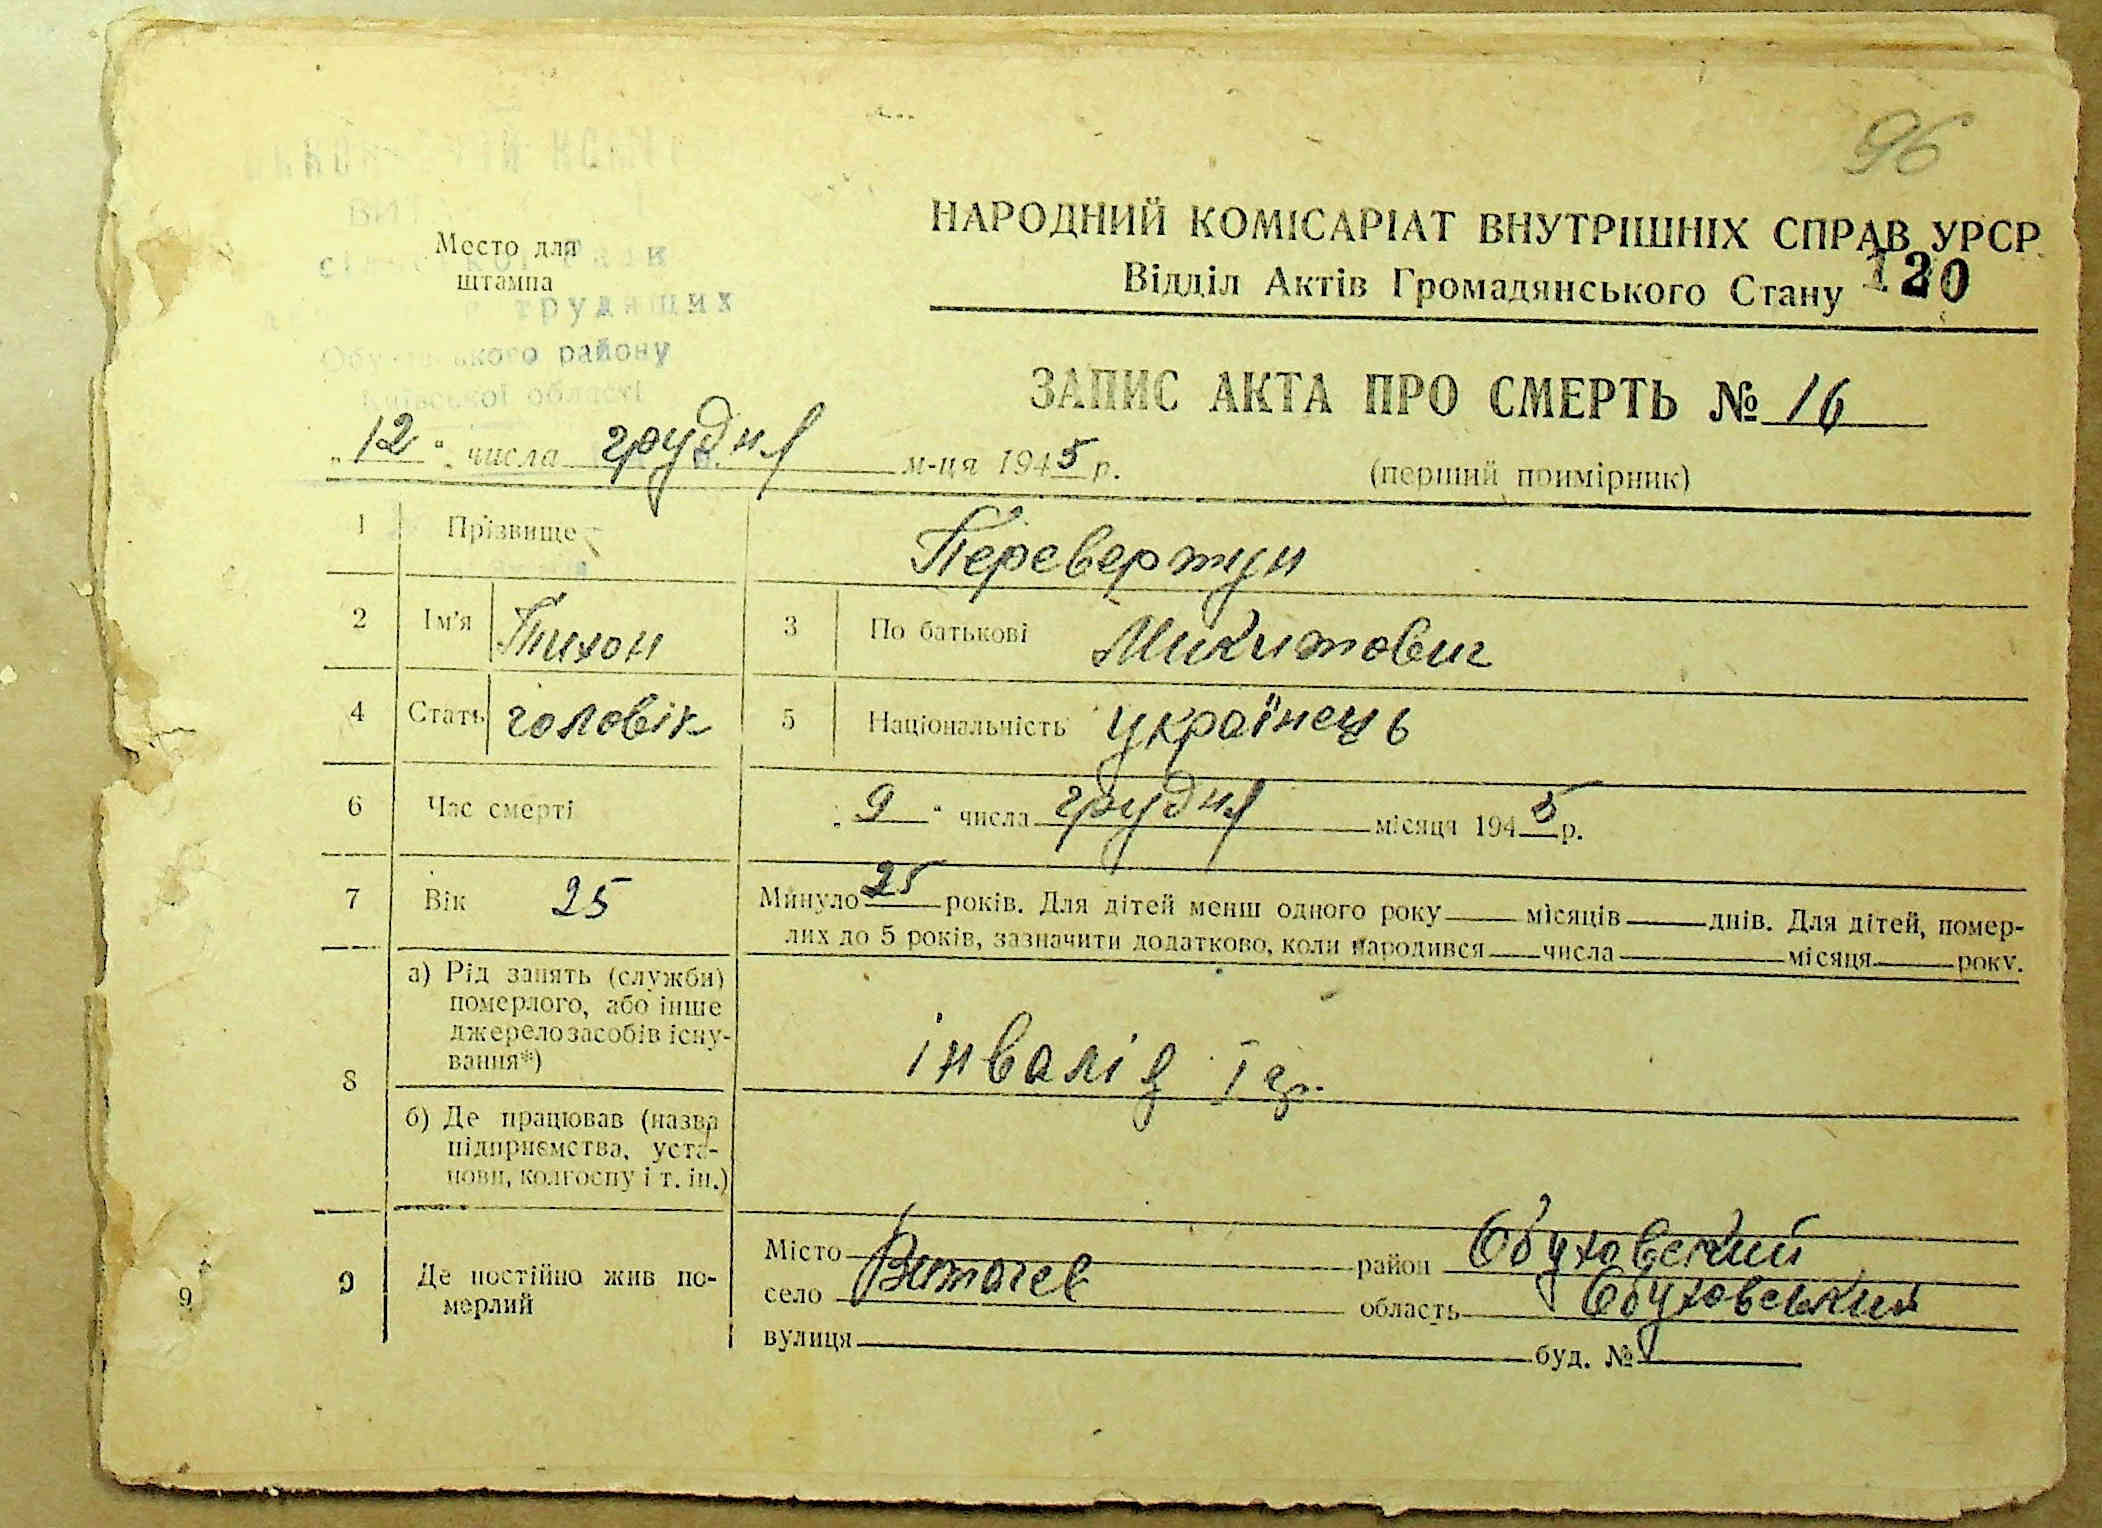 96
НАРОДНИЙ КОМІСАРІАТ ВНУТРІШНІХ СПРАВ УРСР
Відділ Актів Громадянського Стану 120
Место для
штампа
трудящих
району
Київської області
ЗАПИС АКТА ПРО СМЕРТЬ № 16
„12“ числа грудня м-ця 1945 р.
(перший примірник)
1 Прізвище Перевертун
2 Ім'я Тихон 3 По батькові Микитович
4 Стать чоловік 5 Національність українець
6 Час смерті „9“ числа грудня місяця 1945 р.
7 Вік 25 Минуло 25 років. Для дітей менш одного року місяців днів. Для дітей, помер-
лих до 5 років, зазначити додатково, коли народився числа місяця року.
8 а) Рід занять (служби)
померлого, або інше
джерело засобів існу-
вання*)
інвалід І гр.
б) Де працював (назва
підприємства, уста-
нови, колгоспу і т. ін.)
9 Де постійно жив по-
мерлий
Місто район Обуховский
село Витачев область Обуховський
вулиця буд. №
9